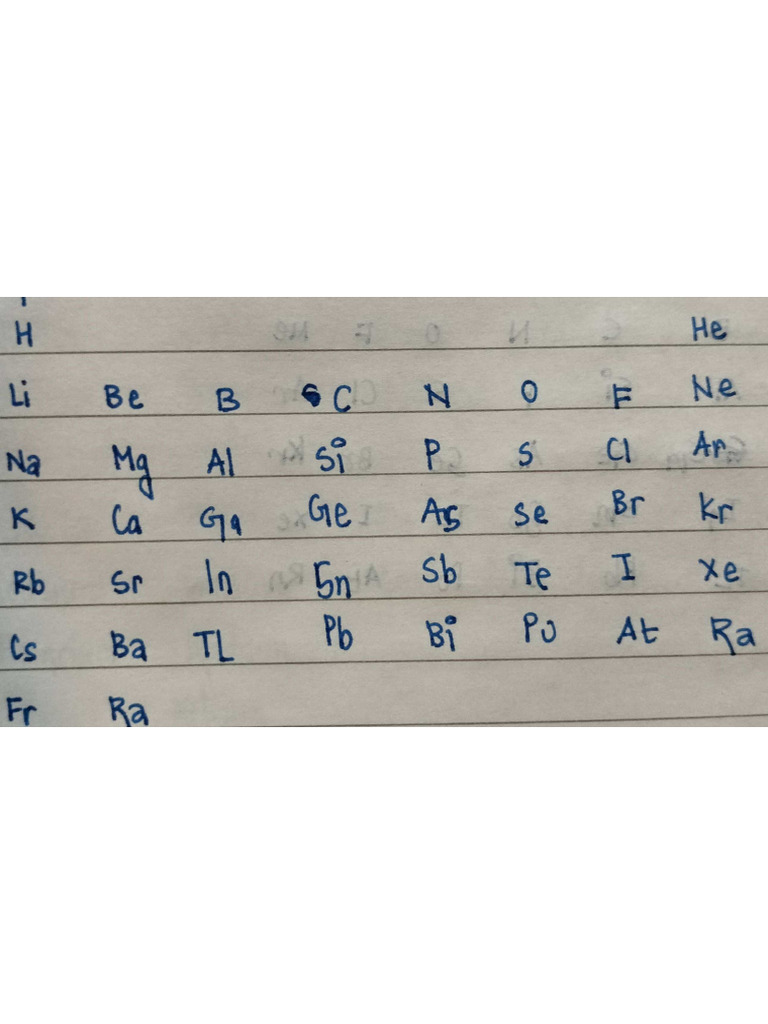 H He
Li Be B C N O F Ne
Na Mg Al Si P S Cl Ar
K Ca Ga Ge As Se Br Kr
Rb Sr In Sn Sb Te I Xe
Cs Ba TL Pb Bi Po At Ra
Fr Ra